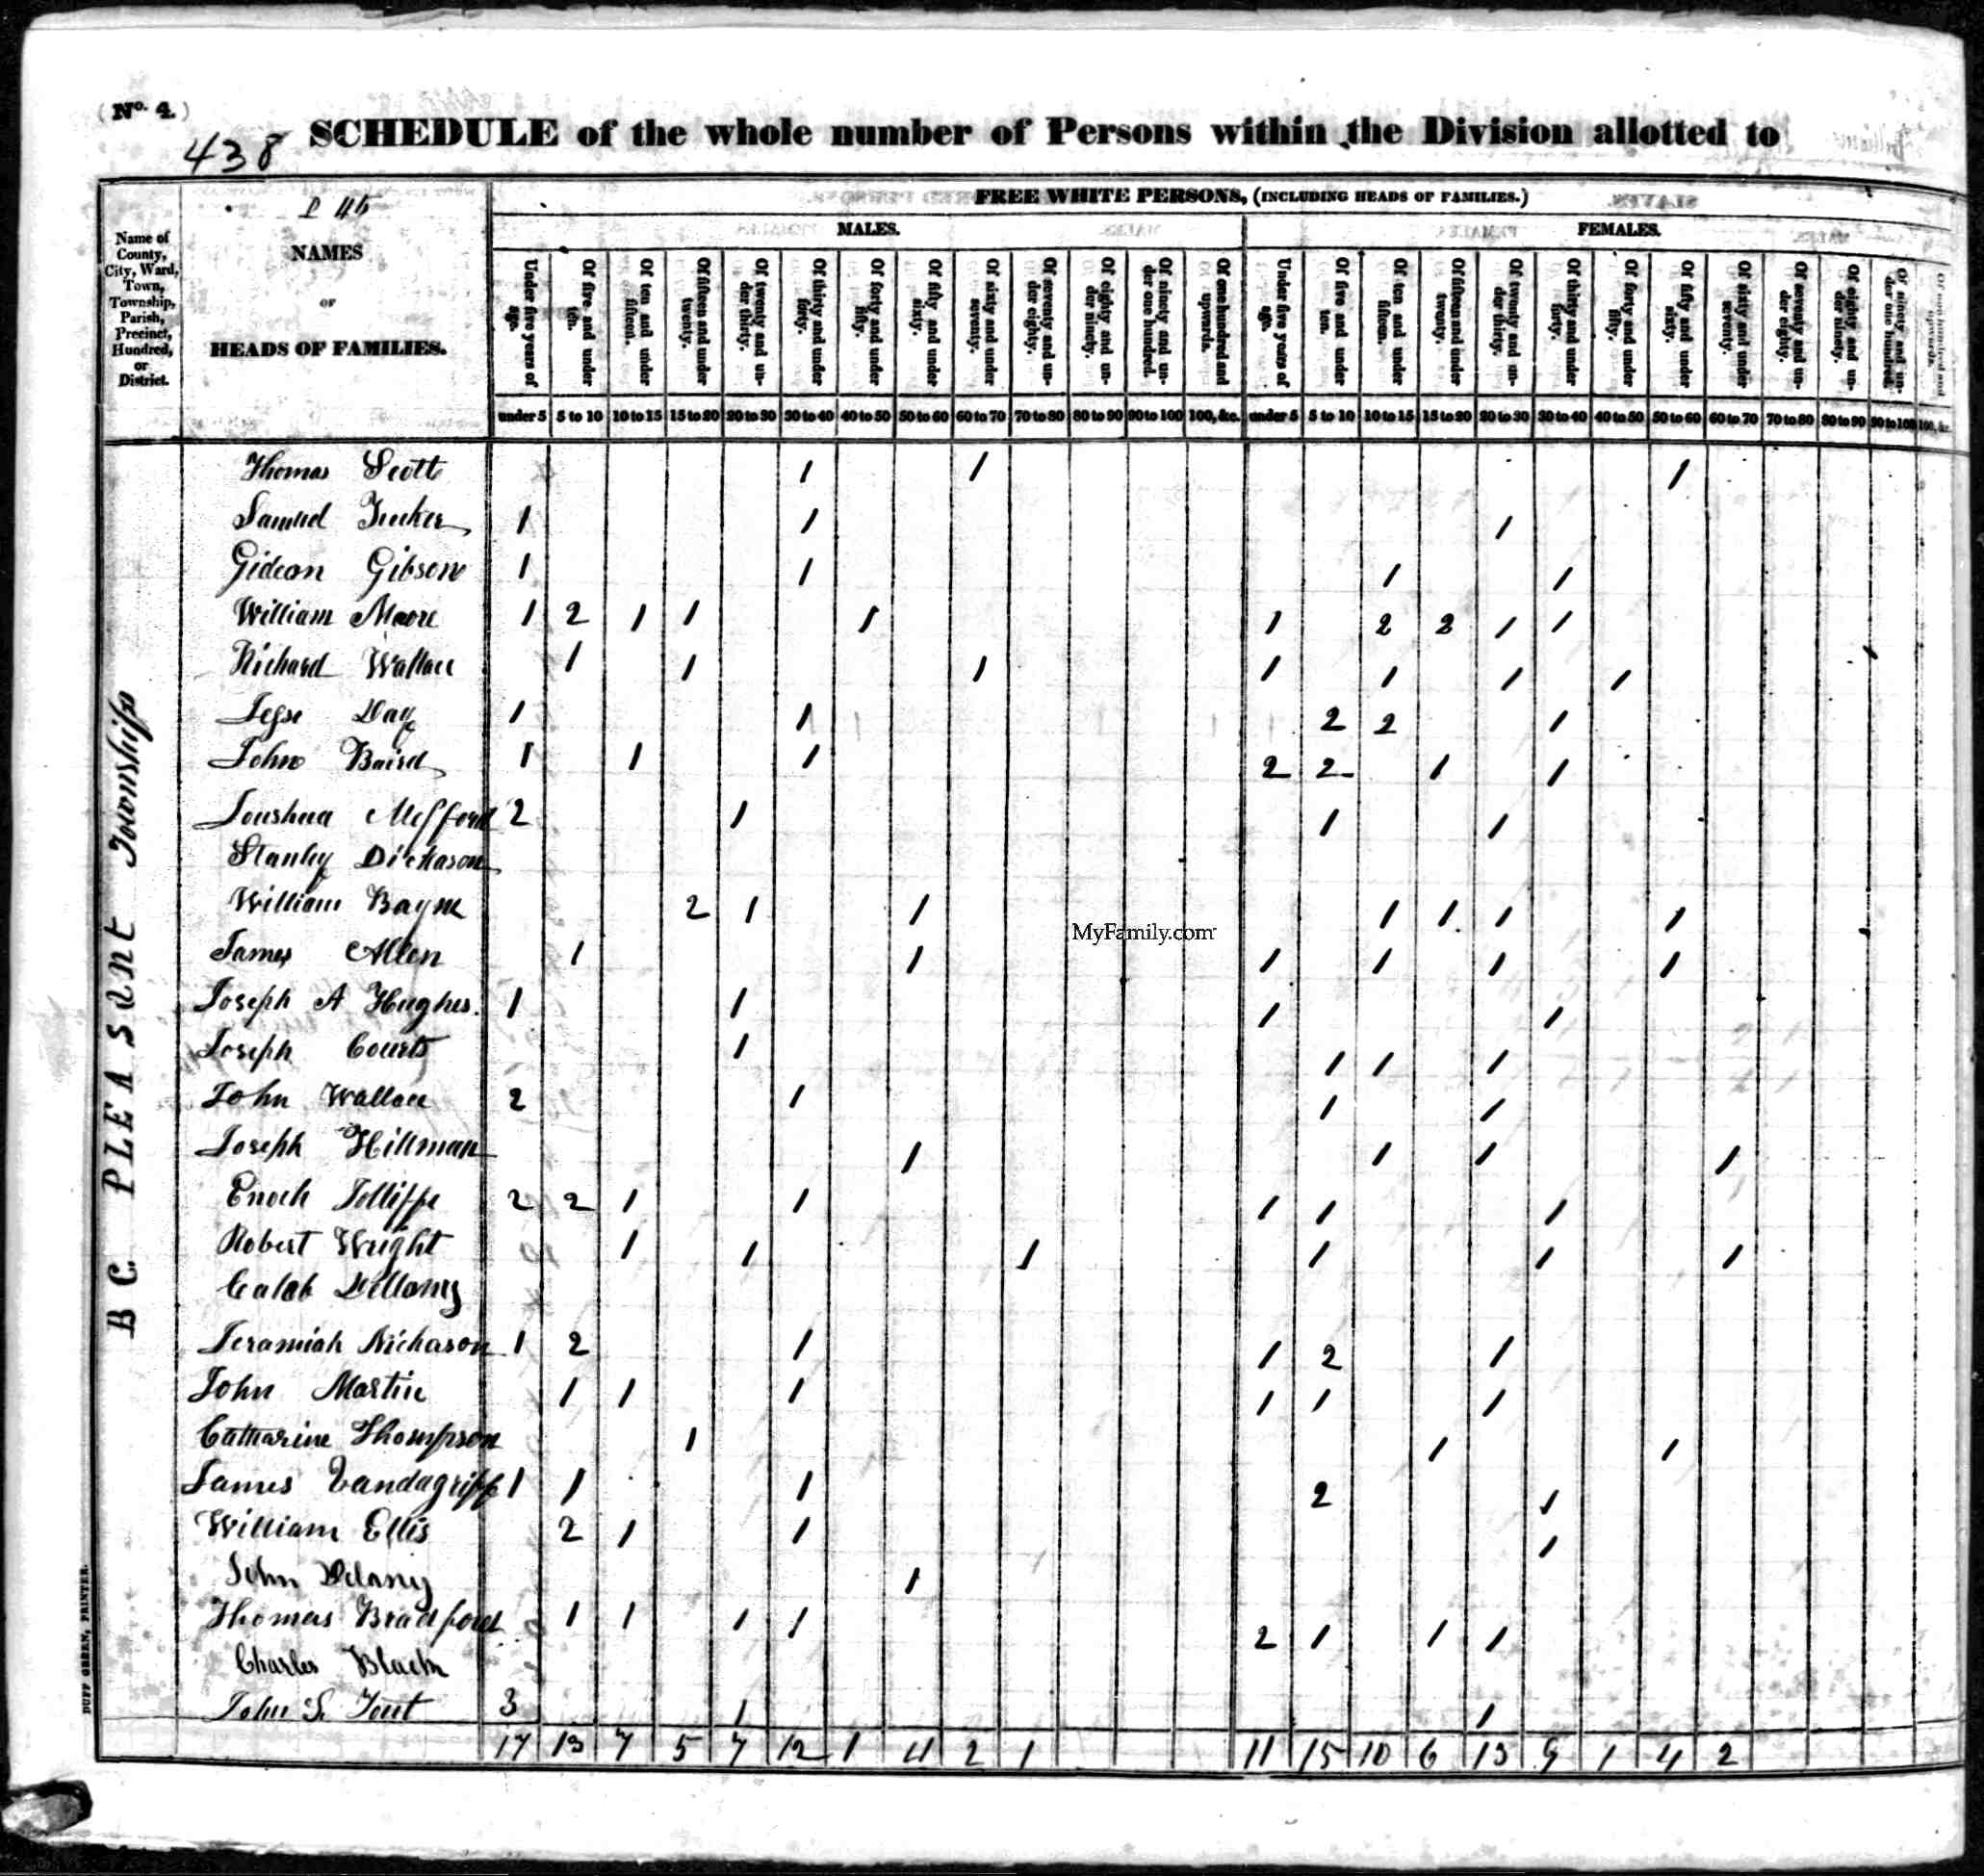 (No. 4.)
438 SCHEDULE of the whole number of Persons within the Division allotted to
FREE WHITE PERSONS, (INCLUDING HEADS OF FAMILIES.)
MALES. FEMALES.
Name of County, City, Ward, Town, Township, Parish, Precinct, Hundred, or District.
NAMES
OF
HEADS OF FAMILIES.
Under five years of age. Of five and under ten. Of ten and under fifteen. Of fifteen and under twenty. Of twenty and under thirty. Of thirty and under forty. Of forty and under fifty. Of fifty and under sixty. Of sixty and under seventy. Of seventy and under eighty. Of eighty and under ninety. Of ninety and under one hundred. Of one hundred and upwards. Under five years of age. Of five and under ten. Of ten and under fifteen. Of fifteen and under twenty. Of twenty and under thirty. Of thirty and under forty. Of forty and under fifty. Of fifty and under sixty. Of sixty and under seventy. Of seventy and under eighty. Of eighty and under ninety. Of ninety and under one hundred. Of one hundred and upwards.
under 5 5 to 10 10 to 15 15 to 20 20 to 30 30 to 40 40 to 50 50 to 60 60 to 70 70 to 80 80 to 90 90 to 100 100, &c. under 5 5 to 10 10 to 15 15 to 20 20 to 30 30 to 40 40 to 50 50 to 60 60 to 70 70 to 80 80 to 90 90 to 100 100, &c.
B C PLEASANT Township
Thomas Scott 1 1 1
Samuel Tucker 1 1 1
Gideon Gibson 1 1 1 1
William Moore 1 2 1 1 1 1 2 2 1 1
Richard Wallace 1 1 1 1 1 1 1
Jesse Day 1 1 2 2 1
John Baird 1 1 1 2 2 1 1
Joushua Mefford 2 1 1 1
Stanley Dickason
William Bayne 2 1 1 1 1 1 1
James Allen 1 1 1 1 1 1
Joseph A Hughes. 1 1 1 1
Joseph Courts 1 1 1 1
John Wallace 2 1 1 1
Joseph Hillman 1 1 1 1
Enoch Jolliffe 2 2 1 1 1 1 1
Robert Wright 1 1 1 1 1 1
Calab Dellany
Jeramiah Nichason 1 2 1 1 2 1
John Martin 1 1 1 1 1 1
Catharine Thompson 1 1 1
James Vandagriff 1 1 1 2 1
William Ellis 2 1 1 1
John Delany 1
Thomas Bradford 1 1 1 1 2 1 1 1
Charles Black
John S. Tout 3 1 1
17 13 7 5 7 12 1 4 2 1 11 15 10 6 13 9 1 4 2
MyFamily.com
DUFF GREEN, PRINTER.